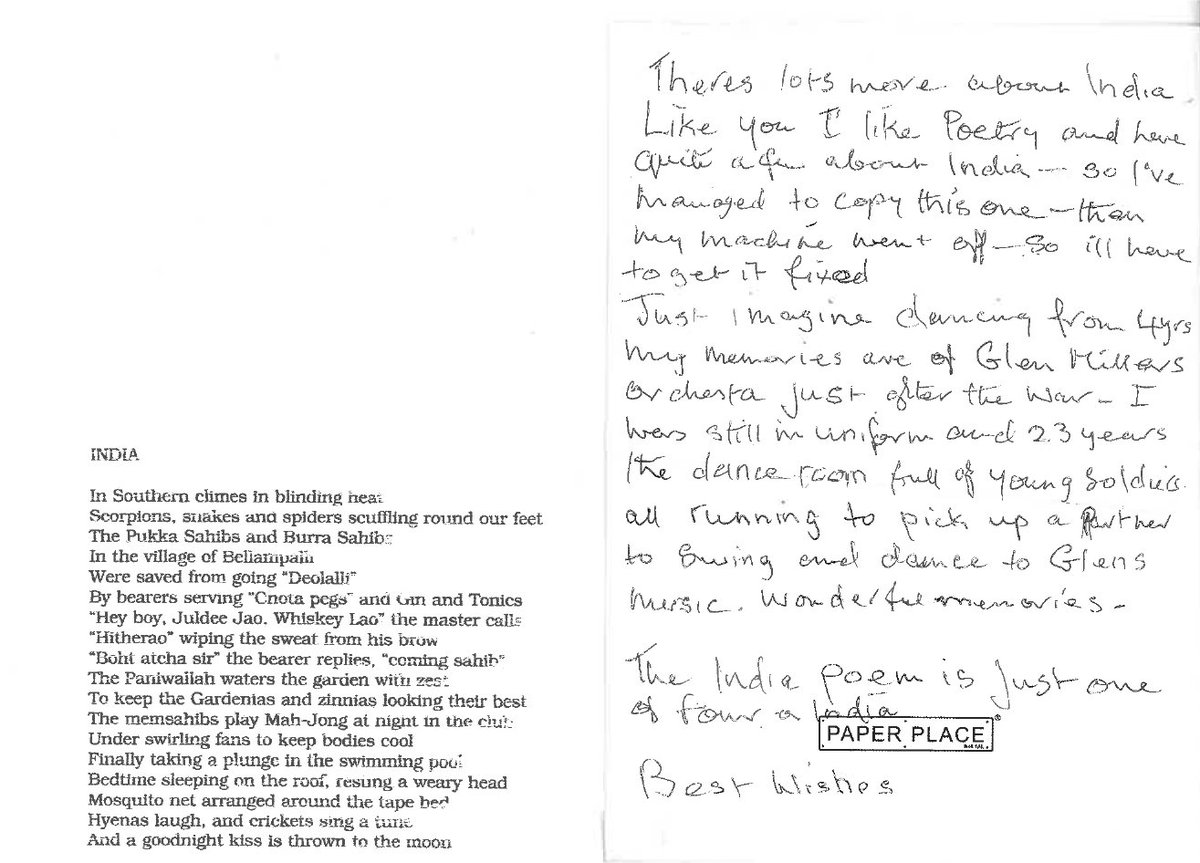 INDIA
In Southern climes in blinding heat
Scorpions, snakes and spiders scuffling round our feet
The Pukka Sahibs and Burra Sahibs
In the village of Bellampalli
Were saved from going "Deolalli"
By bearers serving "Chota pegs" and Gin and Tonics
"Hey boy, Juldee Jao. Whiskey Lao" the master calls
"Hitherao" wiping the sweat from his brow
"Boht atcha sir" the bearer replies, "coming sahib"
The Paniwallah waters the garden with zest
To keep the Gardenias and zinnias looking their best
The memsahibs play Mah-Jong at night in the club
Under swirling fans to keep bodies cool
Finally taking a plunge in the swimming pool
Bedtime sleeping on the roof, resting a weary head
Mosquito net arranged around the tape bed
Hyenas laugh, and crickets sing a tune
And a goodnight kiss is thrown to the moon
Theres lots more about India
Like you I like Poetry and have
quite a few about India — so I've
managed to copy this one — then
my machine went off — so ill have
to get it fixed
Just imagine dancing from 4yrs
my memories are of Glen Millers
orchesta just after the war - I
was still in uniform and 23 years
the dance room full of young Soldies
all running to pick up a Partner
to swing and dance to Glens
music. Wonderful memories -
The India poem is just one
of four a India
PAPER PLACE
Best Wishes